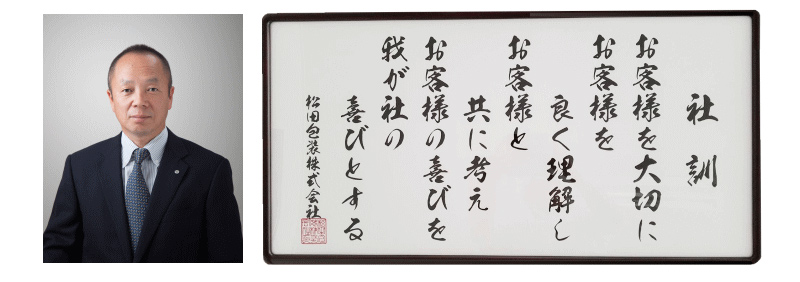 社訓
お客様を大切に
お客様を
良く理解し
お客様と
共に考え
お客様の喜びを
我が社の
喜びとする
松田包装株式会社